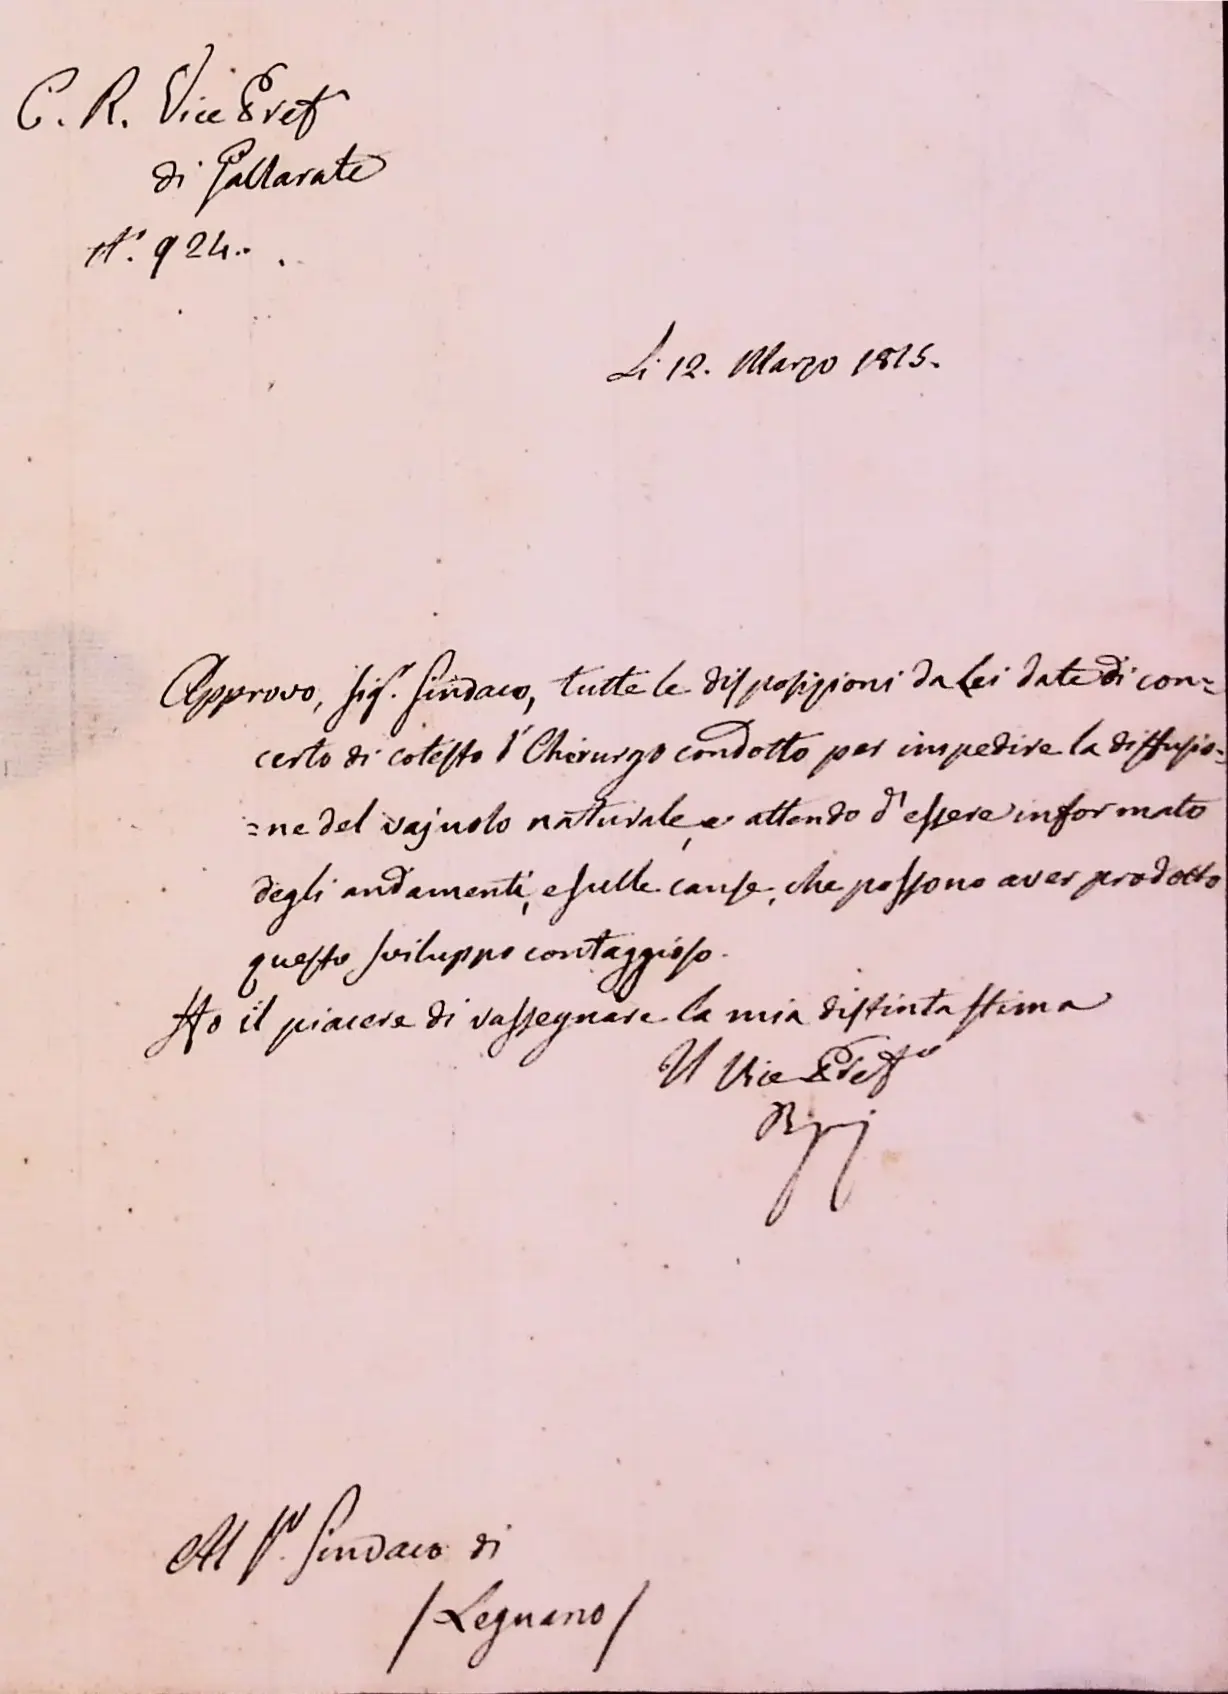 C. R. Vice Pref
di Gallarate
N.° 924.
Li 12. Marzo 1815.
Approvo, Sig.r Sindaco, tutte le disposizioni da Lei date di con=
certo di cotesto Chirurgo condotto per impedire la diffusio=
=ne del vajuolo naturale, e attendo d'essere informato
degli andamenti, e sulle cause, che possono aver prodotto
questo sviluppo contaggioso.
Ho il piacere di rassegnare la mia distinta stima
Il Vice Prefo
Al Sr. Sindaco di
/Legnano/